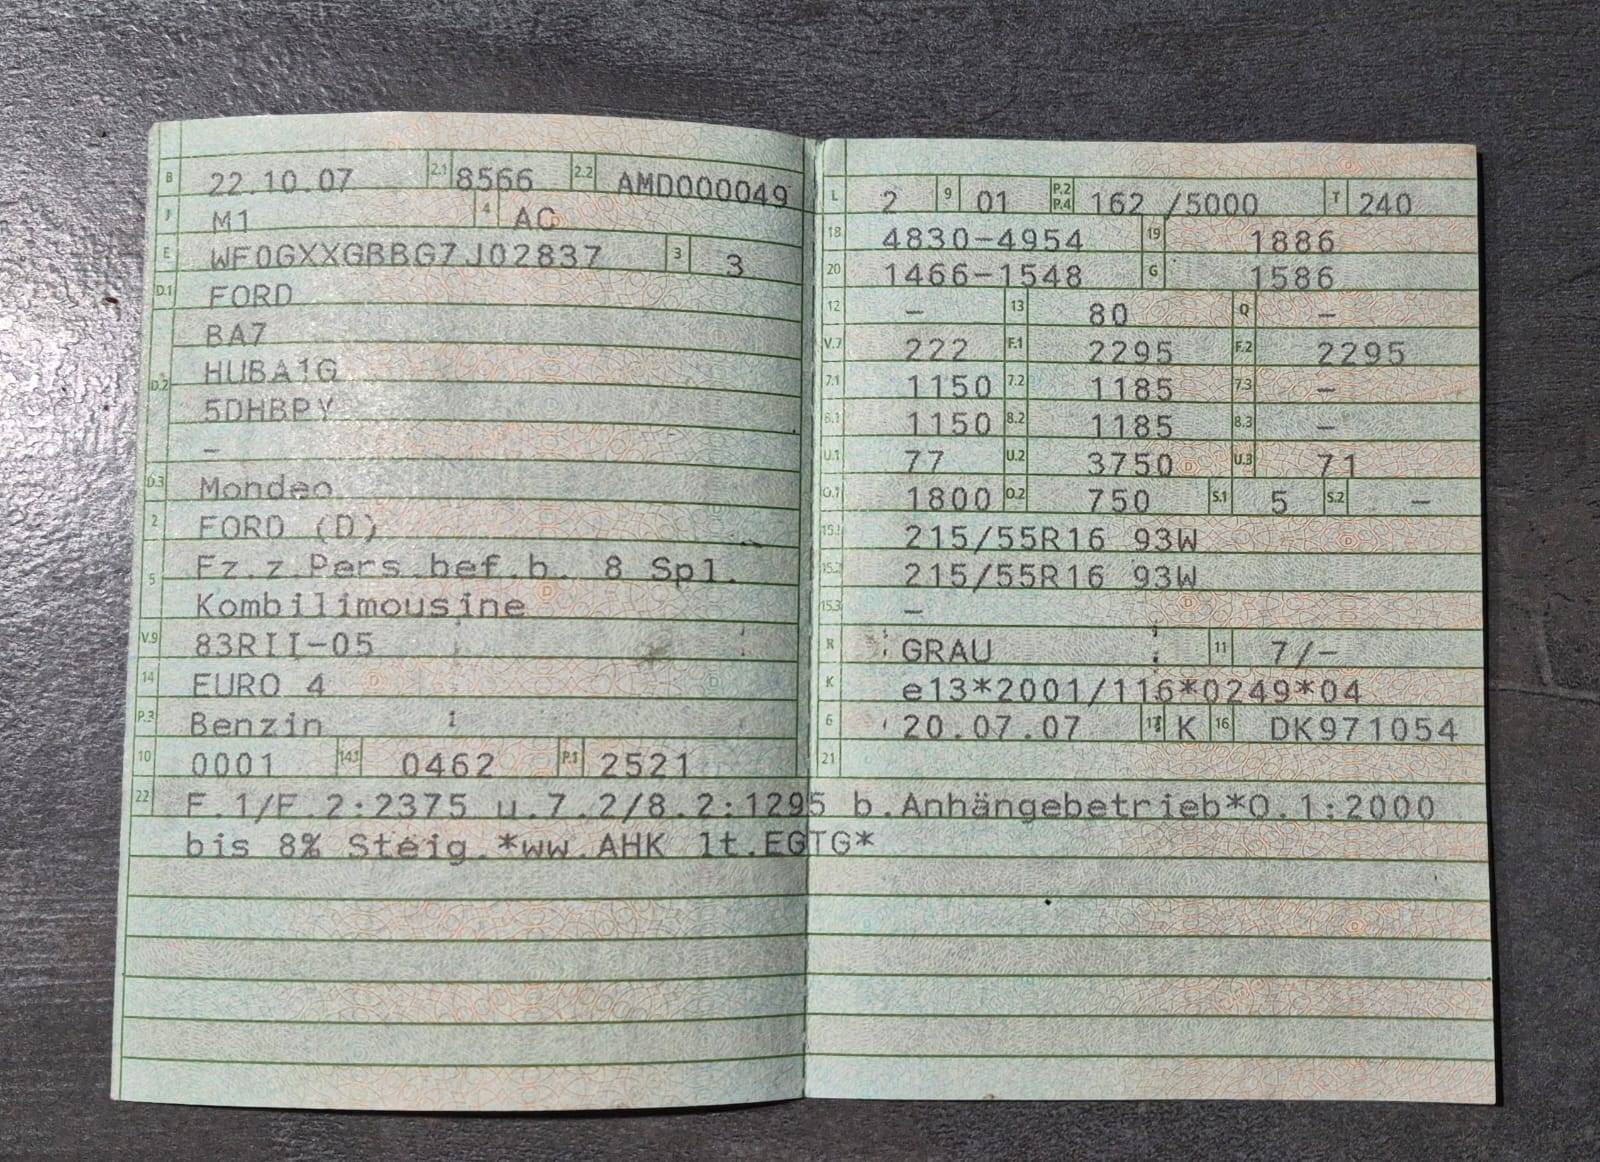 B 22.10.07 2.1 8566 2.2 AMD000049
J M1 4 AC
E WF0GXXGBBG7J02837 3 3
D.1 FORD
BA7
D.2 HUBA1G
5DHBPY
–
D.3 Mondeo
2 FORD (D)
Fz.z.Pers.bef.b. 8 Spl.
5 Kombilimousine
V.9 83RII-05
14 EURO 4
P.3 Benzin
10 0001 14.1 0462 P.1 2521
L 2 9 01 P.2 P.4 162 /5000 T 240
18 4830-4954 19 1886
20 1466-1548 G 1586
12 – 13 80 Q –
V.7 222 F.1 2295 F.2 2295
7.1 1150 7.2 1185 7.3 –
8.1 1150 8.2 1185 8.3 –
U.1 77 U.2 3750 U.3 71
O.1 1800 O.2 750 S.1 5 S.2 –
15.1 215/55R16 93W
15.2 215/55R16 93W
15.3 –
R GRAU 11 7/–
K e13*2001/116*0249*04
6 20.07.07 17 K 16 DK971054
21
22 F.1/F.2:2375 u.7.2/8.2:1295 b.Anhängebetrieb*O.1:2000
bis 8% Steig.*ww.AHK lt.EGTG*